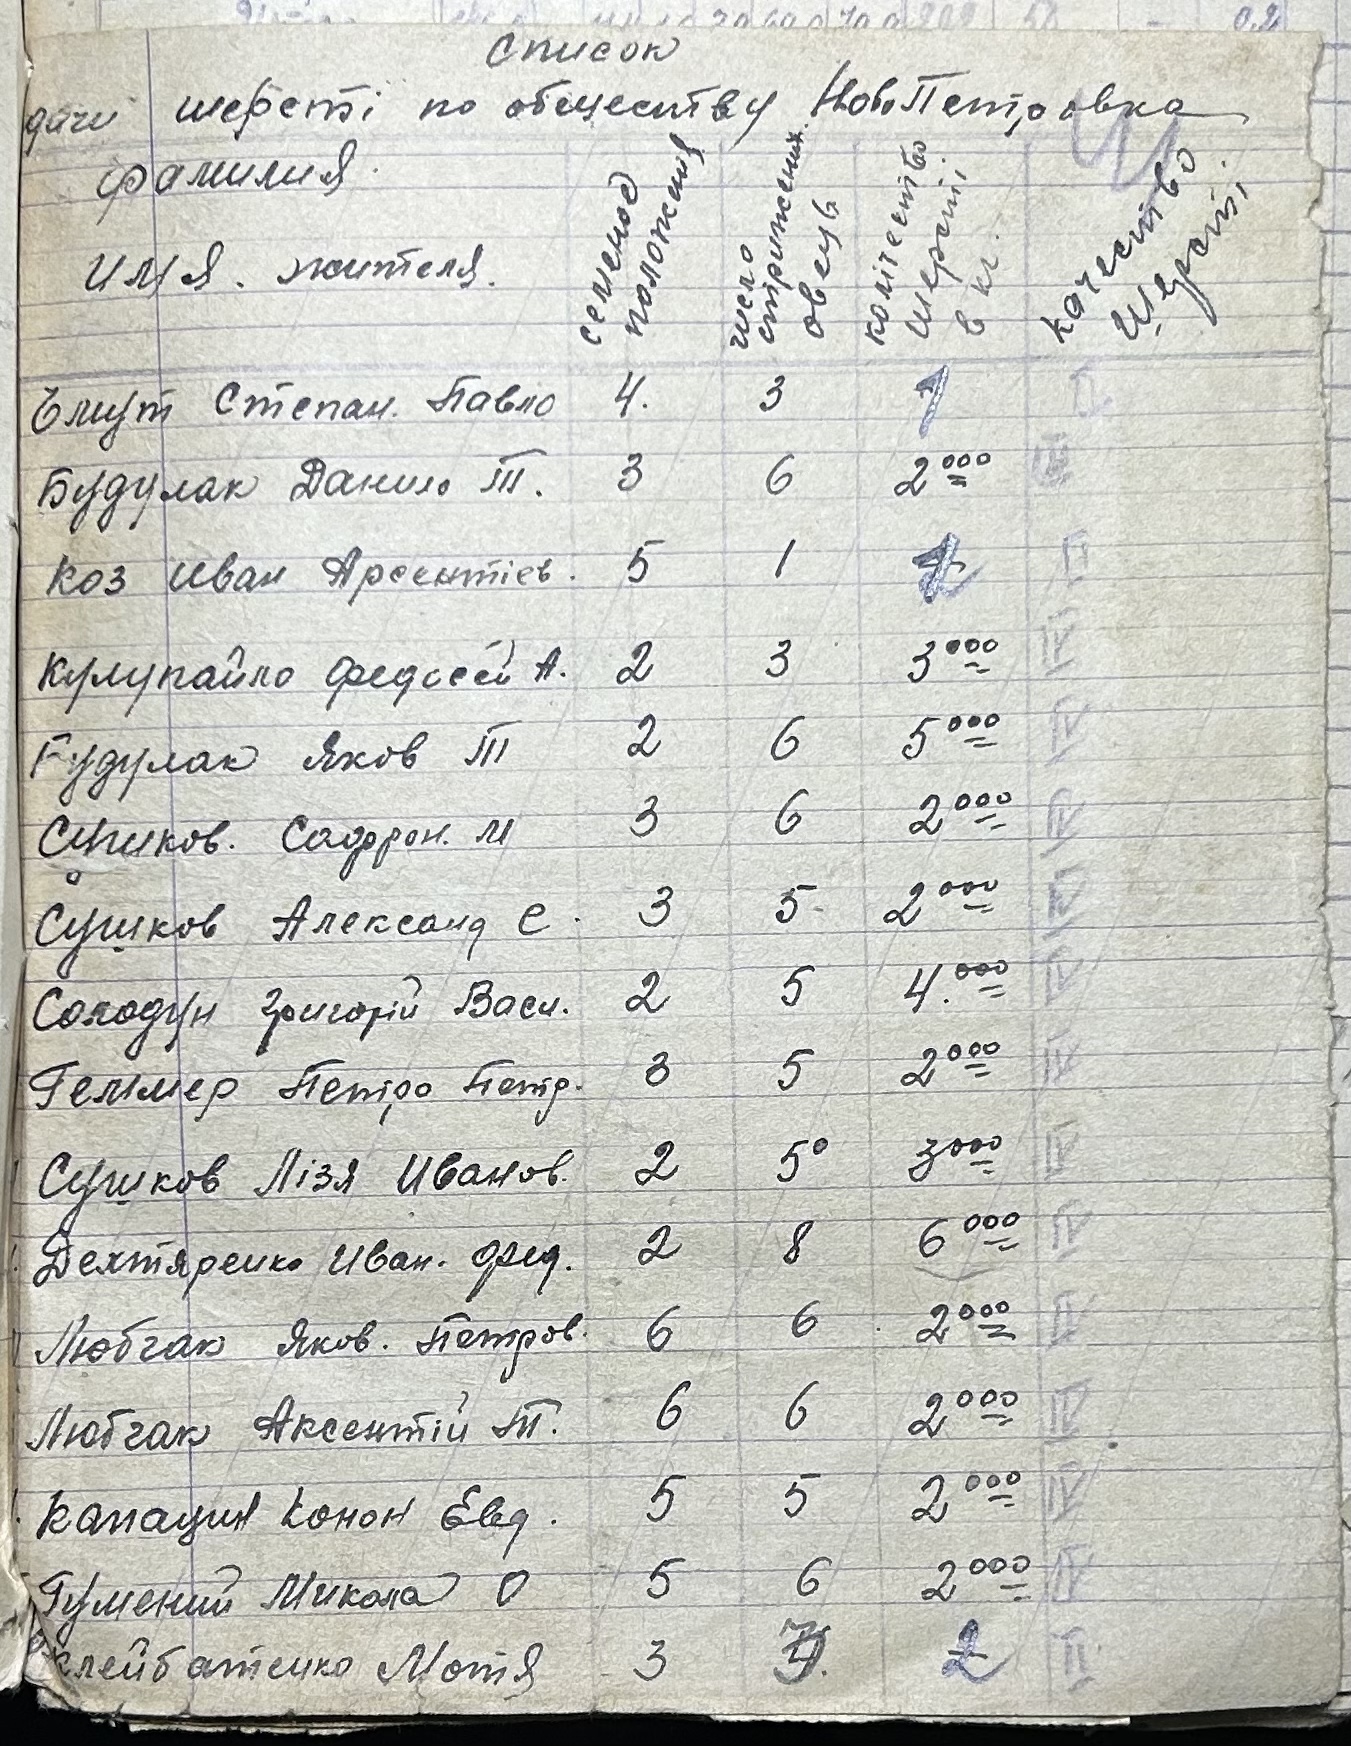 Список
дачи шерсті по обществу НовоПетровка
фамилия семеное положения число стрижених овець колічество шерсті в кг. качество шерсті
имя. жителя.
Степан. Павло 4. 3
Будулак Данило Т. 3 6 2000
Коз Иван Арсентіев. 5 1
Кулупайло Федосей А. 2 3 3000 IV
Будулак Яков Т 2 6 5000 IV
Сушков. Софрон. М 3 6 2000 IV
Сушков Александ С. 3 5 2000 IV
Солодун Григорій Васи. 2 5 4.000 IV
Гельмер Петро Петр. 3 5 2000 IV
Сушков Лізя Иванов. 2 5 3000 IV
Дехтяренко Иван. Фед. 2 8 6000 IV
Любчак Яков. Петров. 6 6 2000
Любчак Аксентій Т. 6 6 2000 IV
Капацин Конон Евд. 5 5 2000 IV
Гумений Микола О 5 6 2000 IV
Клейбатенко Мотя 3 2 II